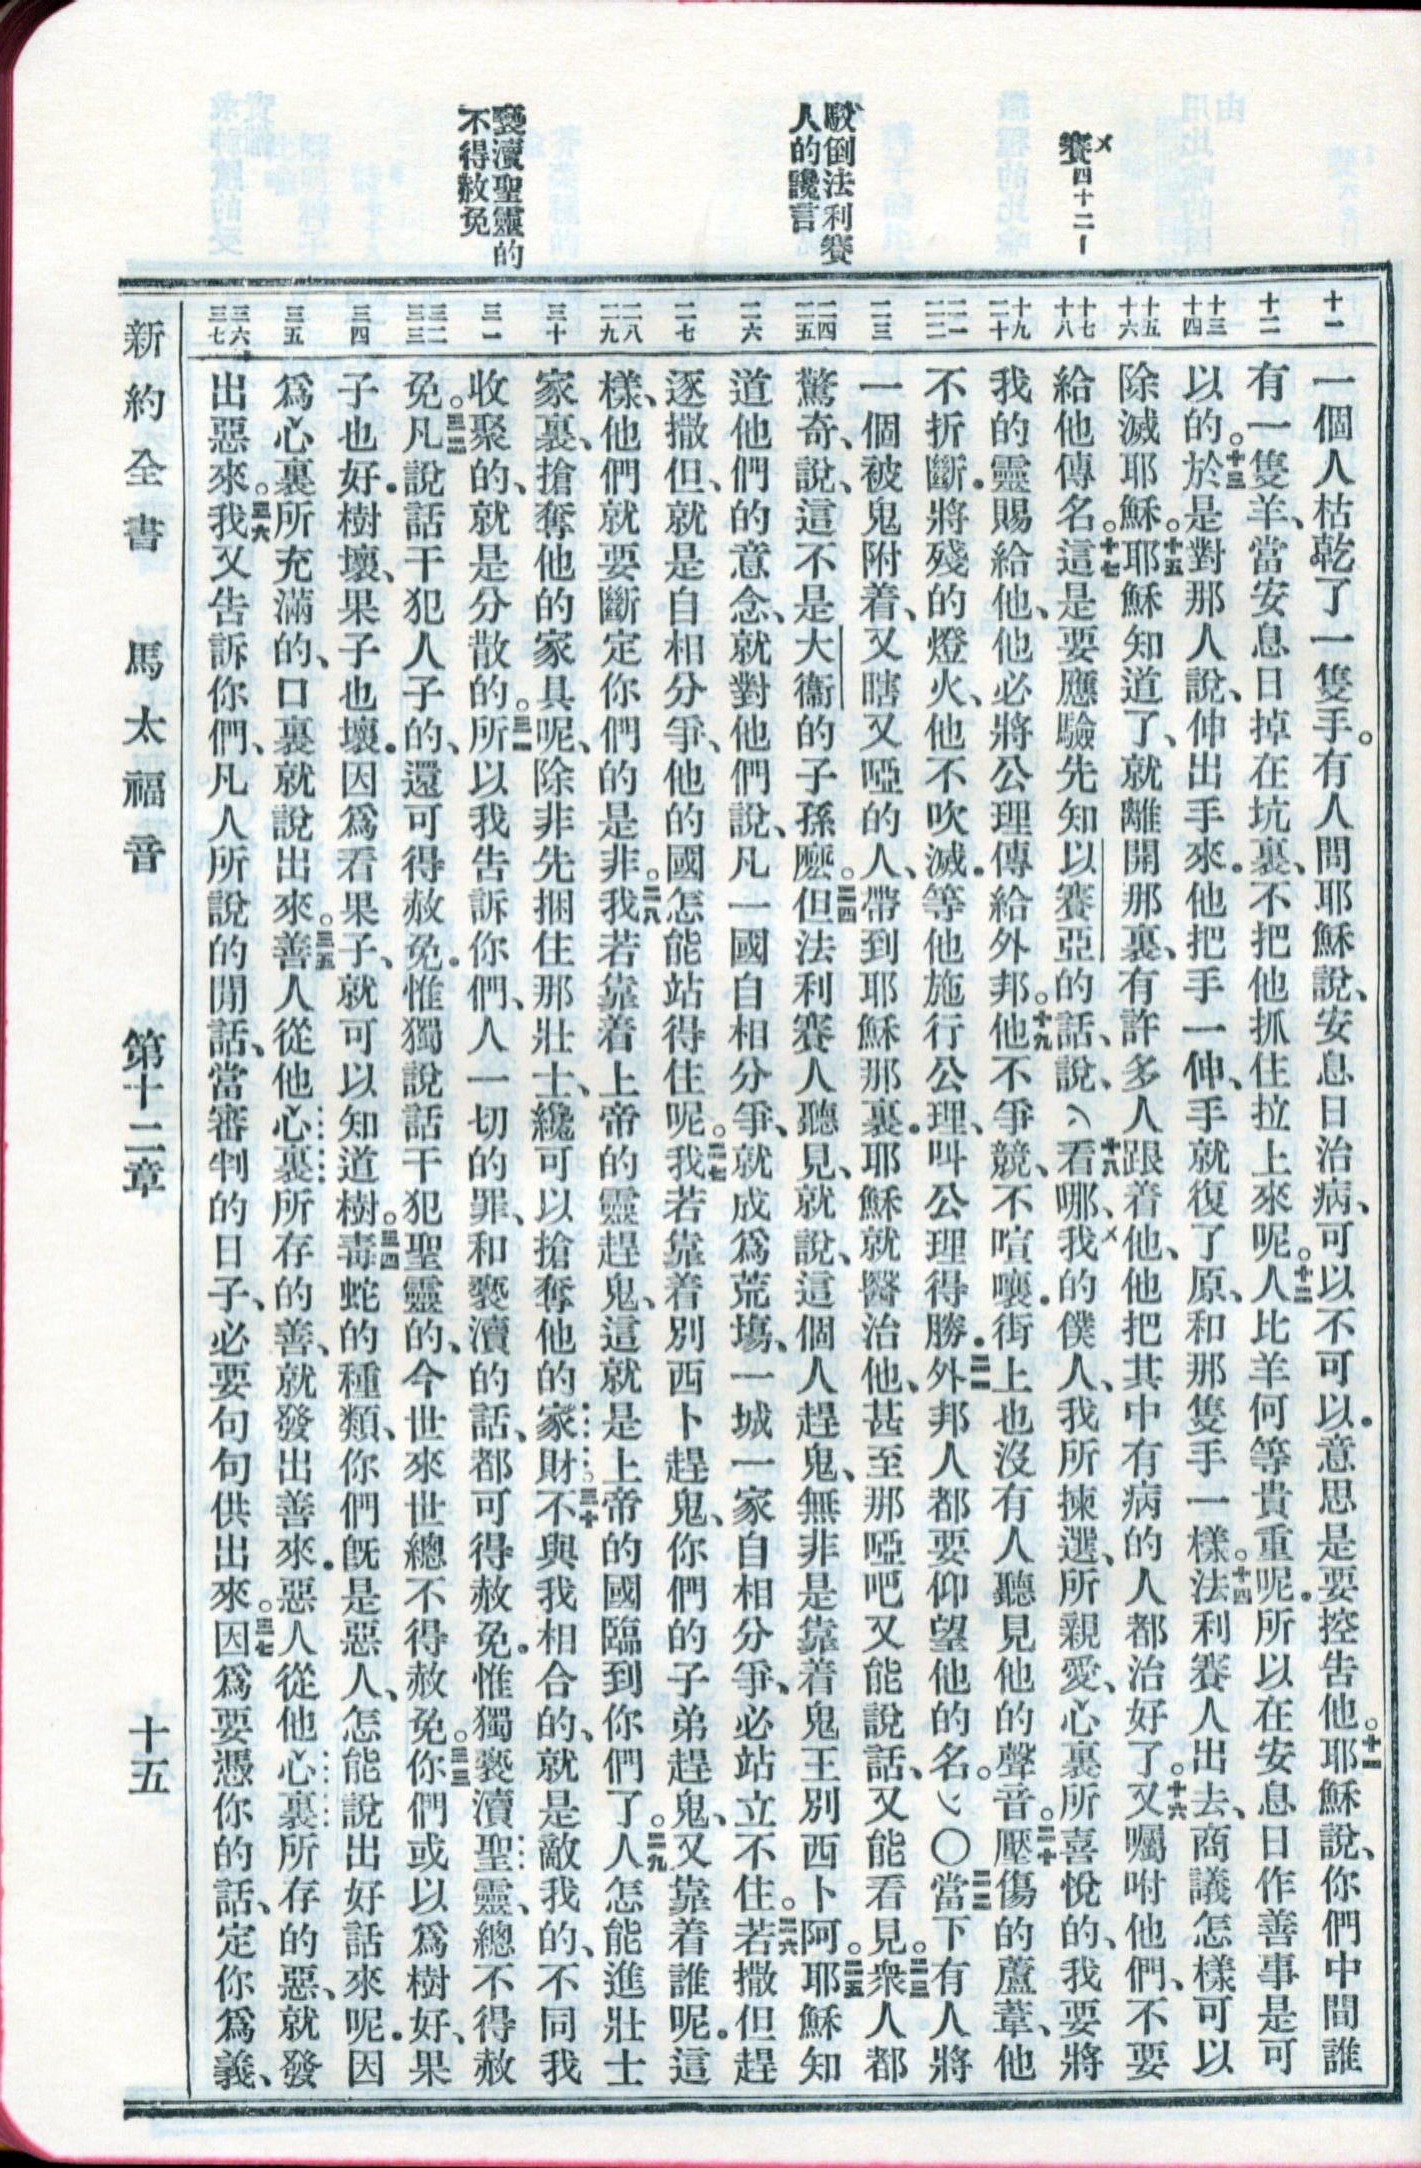 賽四十二
駁倒法利賽
人的讒言
褻瀆聖靈的
不得赦免
十一
十二
十三
十四
十五
十六
十七
十八
十九
二十
二一
二二
二三
二四
二五
二六
二七
二八
二九
三十
三一
三二
三三
三四
三五
三六
三七
一個人枯乾了一隻手。有人問耶穌說、安息日治病、可以不可以．意思是要控告他。十一耶穌說、你們中間誰
有一隻羊、當安息日掉在坑裏、不把他抓住拉上來呢。十二人比羊何等貴重呢．所以在安息日作善事是可
以的。十三於是對那人說、伸出手來．他把手一伸、手就復了原、和那隻手一樣。十四法利賽人出去、商議怎樣可以
除滅耶穌。十五耶穌知道了、就離開那裏、有許多人跟着他、他把其中有病的人都治好了。十六又囑咐他們、不要
給他傳名。十七這是要應驗先知以賽亞的話、說、十八看哪、我的僕人、我所揀選、所親愛、心裏所喜悅的、我要將
我的靈賜給他、他必將公理傳給外邦。十九他不爭競、不喧嚷．街上也沒有人聽見他的聲音。二十壓傷的蘆葦、他
不折斷．將殘的燈火、他不吹滅．等他施行公理、叫公理得勝．二一外邦人都要仰望他的名。〇二二當下有人將
一個被鬼附着、又瞎又啞的人、帶到耶穌那裏．耶穌就醫治他、甚至那啞吧又能說話、又能看見。二三衆人都
驚奇、說、這不是大衞的子孫麼。二四但法利賽人聽見、就說、這個人趕鬼、無非是靠着鬼王別西卜阿。二五耶穌知
道他們的意念、就對他們說、凡一國自相分爭、就成爲荒塲、一城一家自相分爭、必站立不住。二六若撒但趕
逐撒但、就是自相分爭、他的國怎能站得住呢。二七我若靠着別西卜趕鬼、你們的子弟趕鬼、又靠着誰呢．這
樣、他們就要斷定你們的是非。二八我若靠着上帝的靈趕鬼、這就是上帝的國臨到你們了。二九人怎能進壯士
家裏、搶奪他的家具呢、除非先捆住那壯士、纔可以搶奪他的家財。三十不與我相合的、就是敵我的、不同我
收聚的、就是分散的。三一所以我告訴你們、人一切的罪、和褻瀆的話、都可得赦免．惟獨褻瀆聖靈、總不得赦
免。三二凡說話干犯人子的、還可得赦免．惟獨說話干犯聖靈的、今世來世總不得赦免。三三你們或以爲樹好、果
子也好．樹壞、果子也壞．因爲看果子、就可以知道樹。三四毒蛇的種類、你們旣是惡人、怎能說出好話來呢．因
爲心裏所充滿的、口裏就說出來。三五善人從他心裏所存的善、就發出善來．惡人從他心裏所存的惡、就發
出惡來。三六我又告訴你們、凡人所說的閒話、當審判的日子、必要句句供出來。三七因爲要憑你的話、定你爲義、
新約全書　馬太福音　第十二章　十五